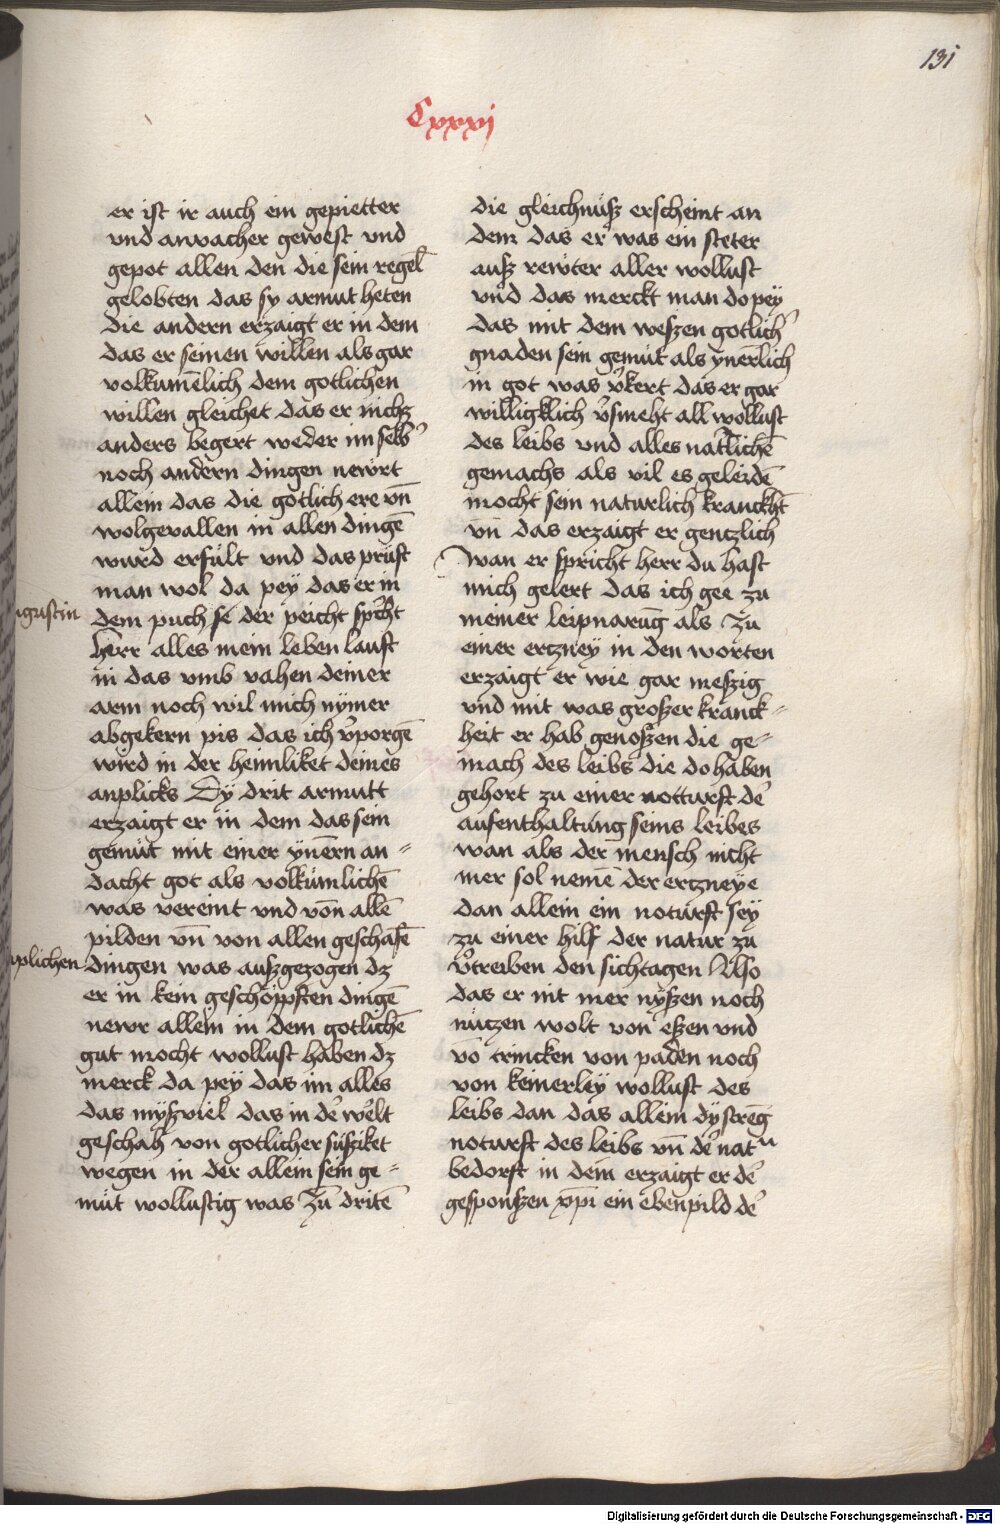 131
Cxxxj
er ist ir auch ein gepietter
vnd anvacher gewest vnd
gepot allen den die sein regel
gelobten das sy armut heten
die andern erzaigt er in dem
das er seinen willen als gar
volkumēlich dem gotlichen
willen gleichet das er nichz
anders begert weder im selb̾
noch andern dingen newrt
allein das die gotlich ere vn̄
wolgevallen in allen dingē
wurd erfült vnd das prüft
man wol da pey das er in
gustin
dem puch se der peicht spͥcht
herr alles mein leben lauft
in das vmb vahen deiner
arm noch wil mich nymer
abgekern pis das ich v̾porgē
wird in der heimliket deines
anplicks Dy drit armutt
erzaigt er in dem das sein
gemüt mit einer ynern an-
dacht got als volkümlichē
was vereint vnd von allē
pilden vn̄ von allen geschafē
plichen
dingen was auszgezogen dz
er in kein geschöppften dingē
newr allein in dem gotlichē
gut mocht wollust haben dz
merck da pey das im alles
das myszviel das in de̾ welt
geschah von gotlicher süsziket
wegen in der allein sein ge-
müt wollustig was Zū dritē
die gleichnüsz erscheint an
dem das er was ein steter
ausz rewter aller wollust
vnd das merckt man do pey
das mit dem weszen gotlich̾
gnaden sein gemüt als ynerlich
in got was v̾kert das er gar
willigklich v̾smeht all wollust
des leibs vnd alles natͬlichē
gemachs als vil es geleidē
mocht sein naturlich kranckht̄
vn̄ das erzaigt er gentzlich
wan er spricht herr du hast
mich gelert das ich gee zu
meiner leipnarūg als zu
einer ertzney in den worten
erzaigt er wie gar meszig
vnd mit was groszer kranck-
heit er hab genoszen die ge-
mach des leibs die do haben
gehort zu einer notturft de̾
aufenthaltung seins leibes
wan als der mensch nicht
mer sol nemē der ertzneye
dan allein ein noturft sey
zu einer hilf der natur zu
v̾treiben den sichtagen Also
das er nit mer nyszen noch
nützen wolt von eszen vnd
vō trincken von paden noch
von keinerley wollust des
leibs dan das allein dy strēg
noturft des leibs vn̄ de̾ natu
bedorft in dem erzaigt er de̾
gesponszen xp̄i ein ebenpild de̾
Digitalisierung gefördert durch die Deutsche Forschungsgemeinschaft - DFG